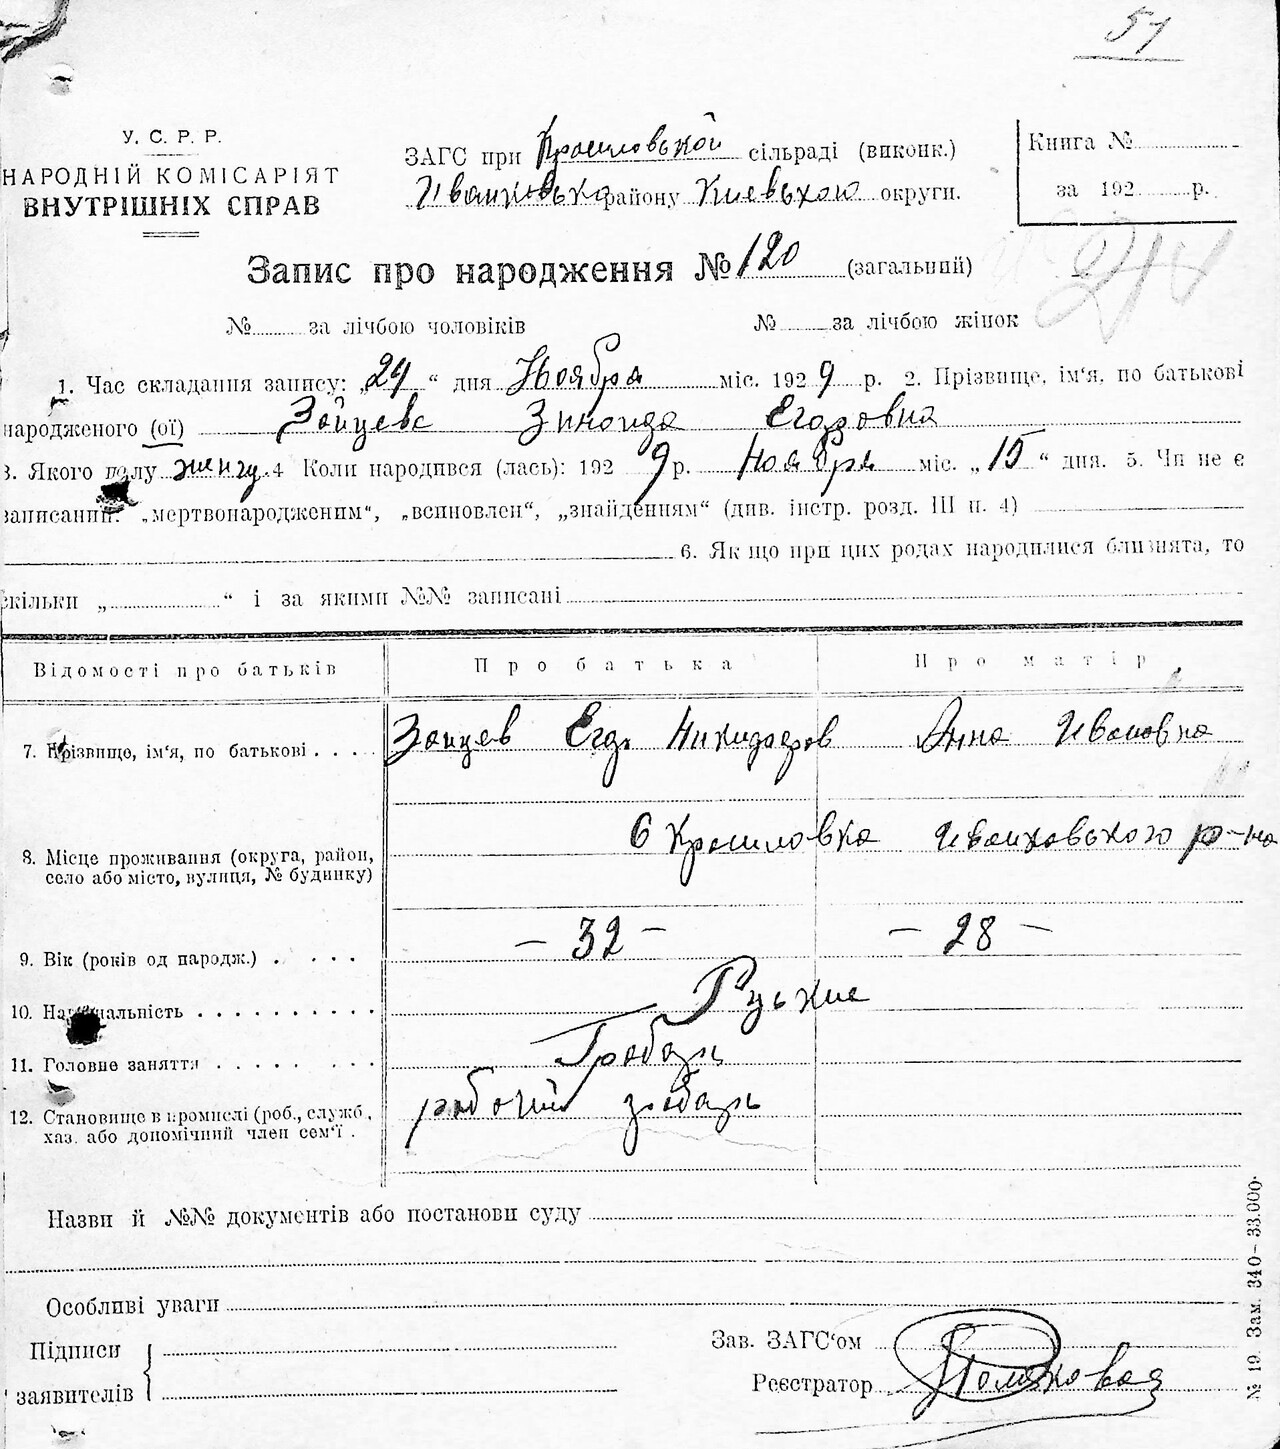 51
У. С. Р. Р.
НАРОДНІЙ КОМІСАРІЯТ
ВНУТРІШНІХ СПРАВ
ЗАГС при Крошловській сільраді (виконк.)
району Киевькою округи.
Книга №
за 192 р.
Запис про народження № 120 (загальний)
№ за лічбою чоловіків № за лічбою жінок
1. Час складання запису: „24“ дня Ноября міс. 1929 р. 2. Прізвище, ім‘я, по батькові
народженого (ої) Зайцева Зиноида Егоровна
3. Якого полу женщ. 4 Коли народився (лась): 1929 р. Ноября міс. „15“ дня. 5. Чи не є
записаний: „мертвонародженим“, „всиновлен“, „знайденням“ (див. інстр. розд. III п. 4)
6. Як що при цих родах народилися близнята, то
скільки „ “ і за якими №№ записані
Відомості про батьків Про батька Про матір
7. Прізвище, ім‘я, по батькові Зайцев Егор Никифоров Анна Ивановна
8. Місце проживання (округа, район, село або місто, вулиця, № будинку) Крошловка Иванковського р-на
9. Вік (років од народж.) — 32 — — 28 —
10. Національність Руськие
11. Головне заняття Грабарь
12. Становище в промислі (роб., служб., хаз. або допомічний член сем‘ї рабочий грабарь
Назви й №№ документів або постанови суду
Особливі уваги
Підписи заявителів
Зав. ЗАГС‘ом
Реєстратор Поляковая
№ 19. Зам. 340—33.000.